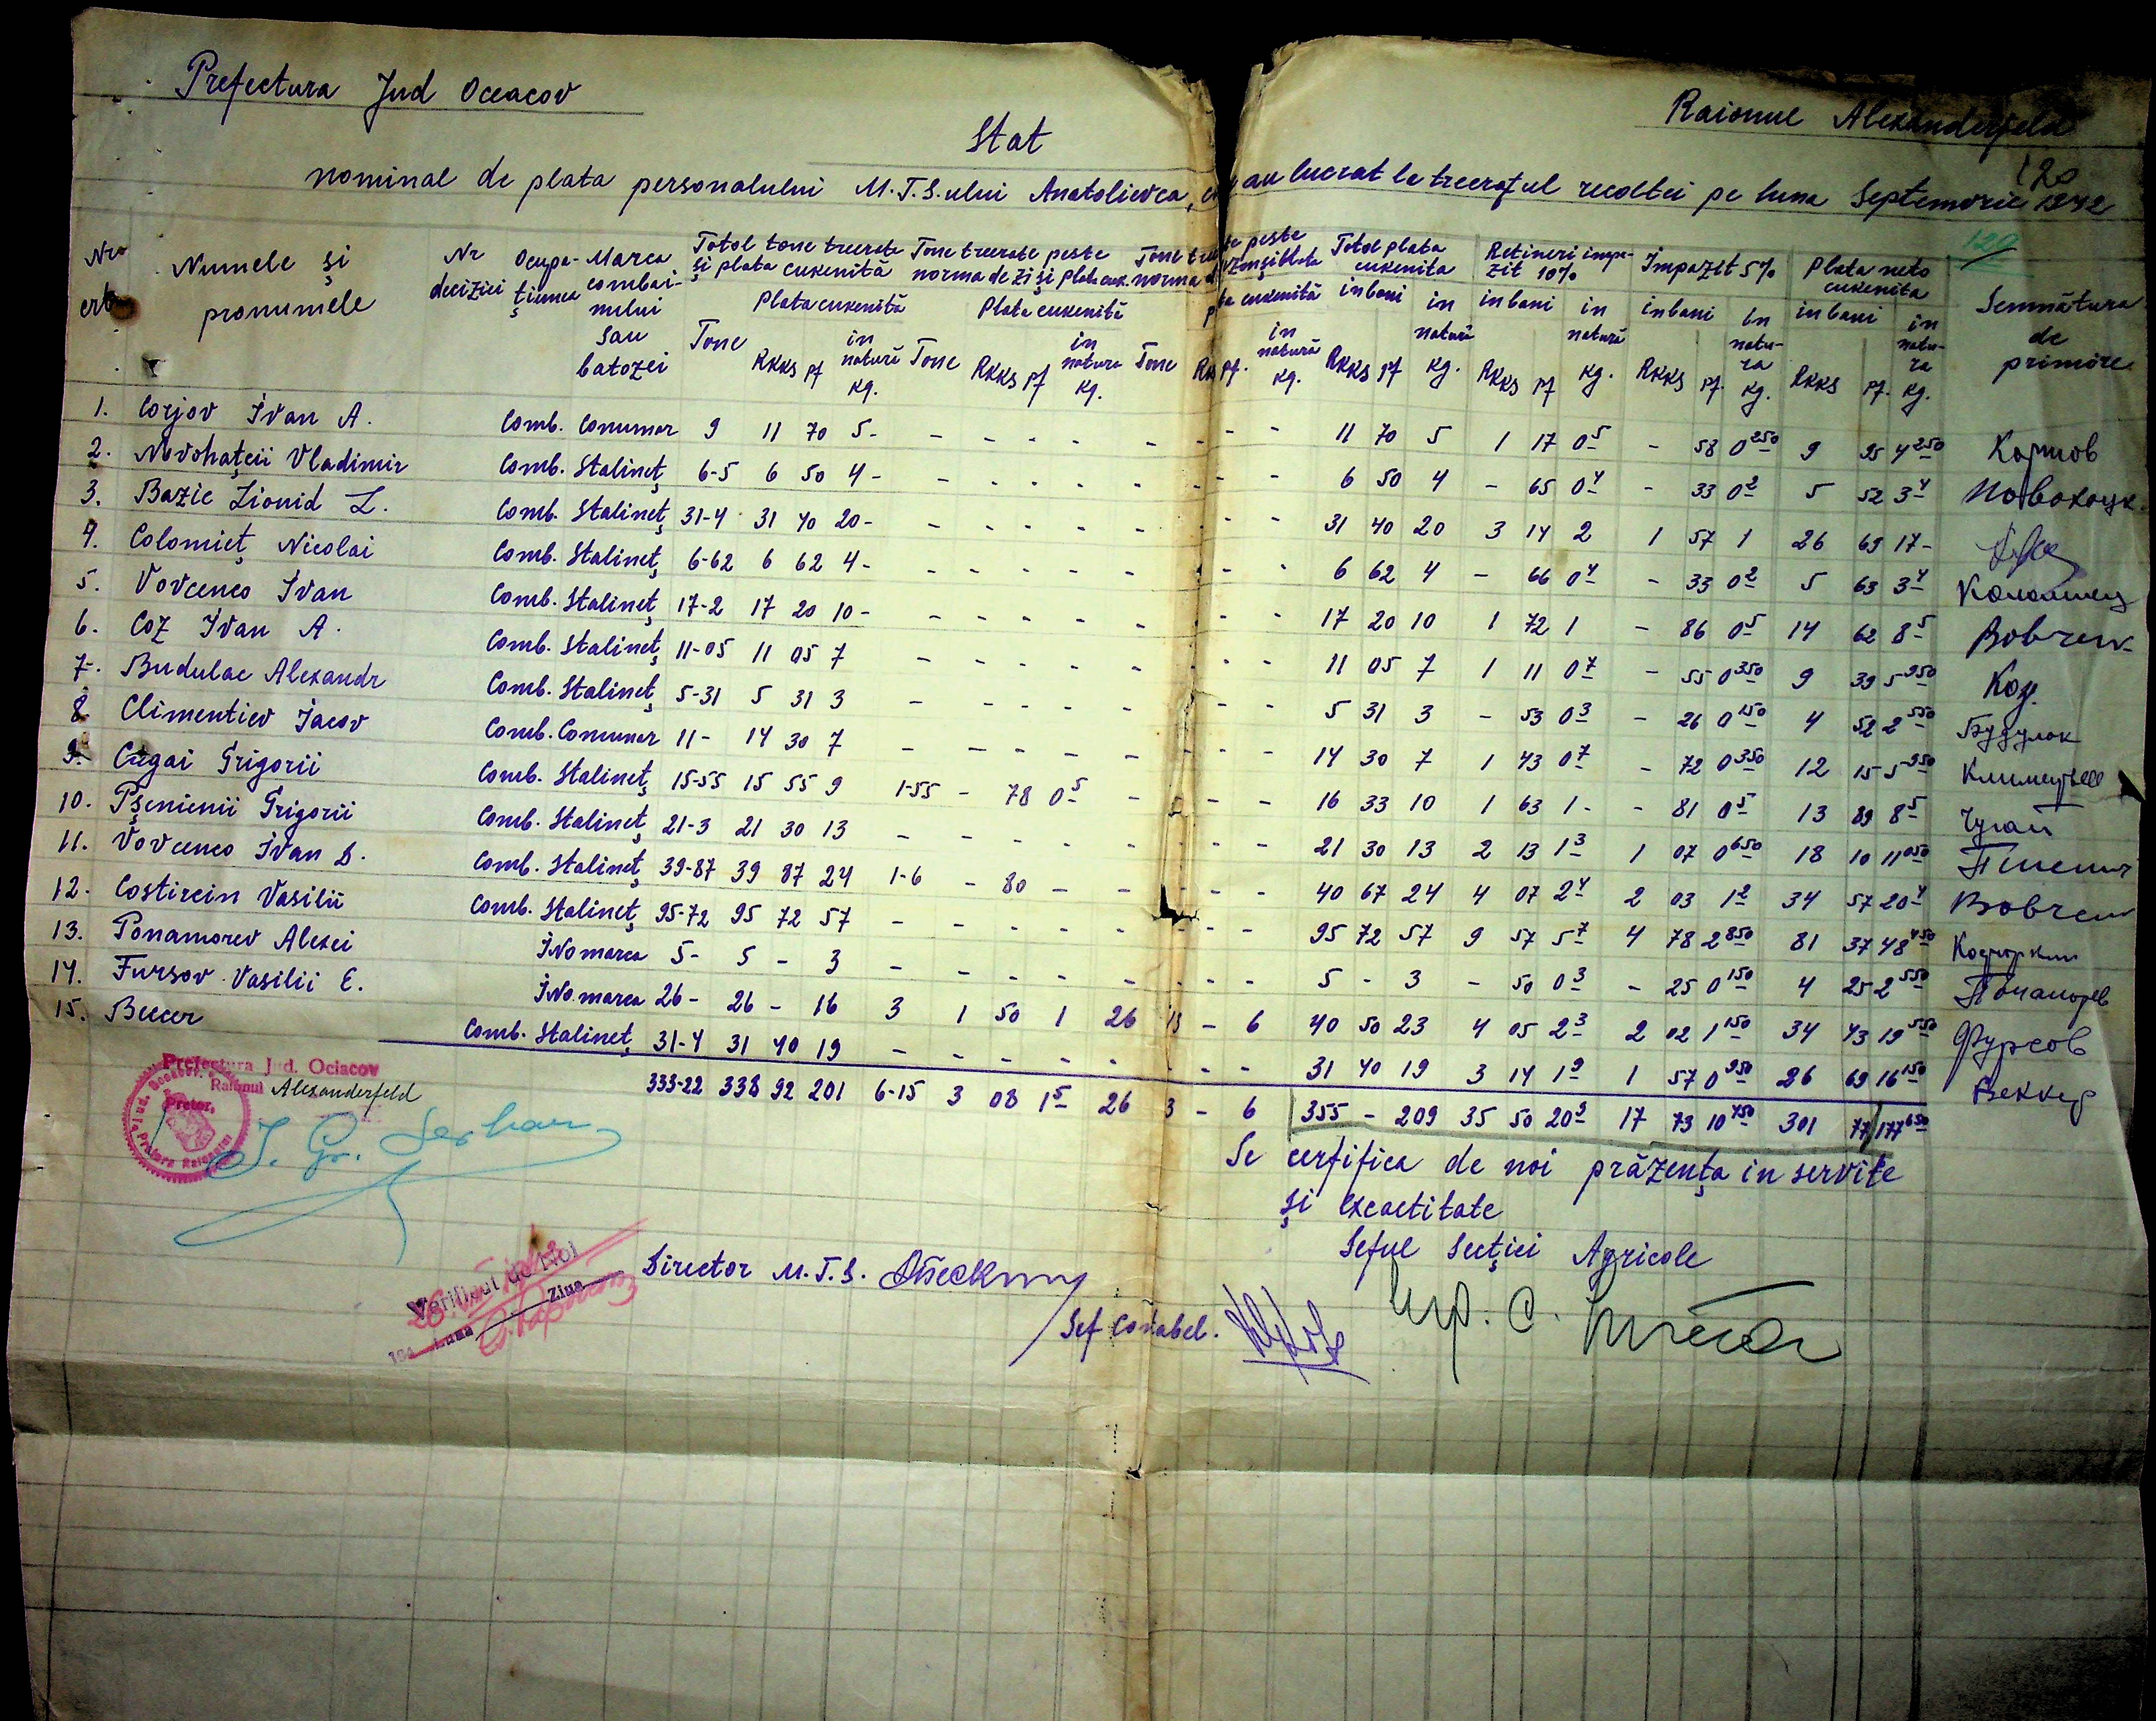 Prefectura Jud Oceacov
Raionul Alexanderfeld
Stat
120
nominal de plata personalului M.T.S.ului Anatolievca, au lucrat la treeratul recoltei pe luna Septemvrie 1942
120
Nro crt
Numele și pronumele
Nr deciziei
Ocupațiunea
Marca combainului sau batozei
Total tone treerate și plata cuvenită
Tone treerate peste norma de zi și plata cuv.
Tone peste norma
Total plata cuvenita
Retineri impozit 10%
Impozit 5%
Plata neto cuvenita
Semnătura de primire
Plata cuvenită Plata cuvenită cuvenită in bani in natură in bani in natură in bani in natura in bani in natura
Tone RKKS pf in natură kg. Tone RKKS pf in natura kg. Tone pf. in natură kg. RKKS pf kg. RKKS pf kg. RKKS pf. kg. RKKS pf. kg.
1. Corjov Ivan A. Comb. Comunar 9 11 70 5- - - - - - - - - 11 70 5 1 17 0 5 - 58 0 250 9 95 4 250 Коржов
2. Novohațcii Vladimir Comb. Stalineț 6-5 6 50 4- - - - - - - - - 6 50 4 - 65 0 4 - 33 0 2 5 52 3 4
3. Bazic Lionid L. Comb. Stalineț 31-4 31 40 20- - - - - - - - - 31 40 20 3 14 2 1 57 1 26 69 17-
4. Colomieț Nicolai Comb. Stalineț 6-62 6 62 4- - - - - - - - - 6 62 4 - 66 0 4 - 33 0 2 5 63 3 4 Коломиец
5. Vovcenco Ivan Comb. Stalineț 17-2 17 20 10- - - - - - - - - 17 20 10 1 72 1 - 86 0 5 14 62 8 5 Вовчен
6. Coz Ivan A. Comb. Stalineț 11-05 11 05 7 - - - - - - - - 11 05 7 1 11 0 7 - 55 0 350 9 39 5 950 Коз
7. Budulac Alexandr Comb. Stalineț 5-31 5 31 3 - - - - - - - - 5 31 3 - 53 0 3 - 26 0 150 4 52 2 550 Будулак
8 Climentiev Iacov Comb. Comunar 11- 14 30 7 - - - - - - - - 14 30 7 1 43 0 7 - 72 0 350 12 15 5 950 Климентьев
9. Cugai Grigorii Comb. Stalineț 15-55 15 55 9 1-55 - 78 0 5 - - - - 16 33 10 1 63 1- - 81 0 5 13 89 8 5 Чугай
10. Pșenicnii Grigorii Comb. Stalineț 21-3 21 30 13 - - - - - - - - 21 30 13 2 13 1 3 1 07 0 650 18 10 11 050 Пшенич
11. Vovcenco Ivan D. Comb. Stalineț 39-87 39 87 24 1-6 - 80 - - - - - 40 67 24 4 07 2 4 2 03 1 2 34 57 20 4 Вовчен
12. Costircin Vasilii Comb. Stalineț 95-72 95 72 57 - - - - - - - - 95 72 57 9 57 5 7 4 78 2 850 81 37 48 450 Костиркин
13. Ponamorev Alexei INo marca 5- 5 - 3 - - - - - - - - 5 - 3 - 50 0 3 - 25 0 150 4 25 2 550 Понаморев
14. Fursov Vasilii E. INo. marca 26- 26 - 16 3 1 50 1 26 13 - 6 40 50 23 4 05 2 3 2 02 1 150 34 43 19 550 Фурсов
15. Beccer Comb. Stalineț 31-4 31 40 19 - - - - - - - - 31 40 19 3 14 1 9 1 57 0 950 26 69 16 150 Беккер
333-22 338 92 201 6-15 3 08 1 5 26 3 - 6 355 - 209 35 50 20 9 17 73 10 450 301 77 177 650
Prefectura Jud. Ociacov
Raionul Alexanderfeld
Pretor,
Se certifica de noi prăzența in servite
și exeactitate
Seful Secției Agricole
Verificat de Noi
Ziua
194 Luna
Director M.T.S.
Sef Contabel.